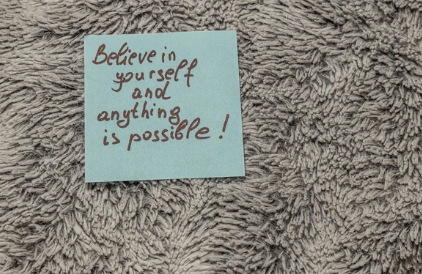 Believe in
yourself
and
anything
is possible!